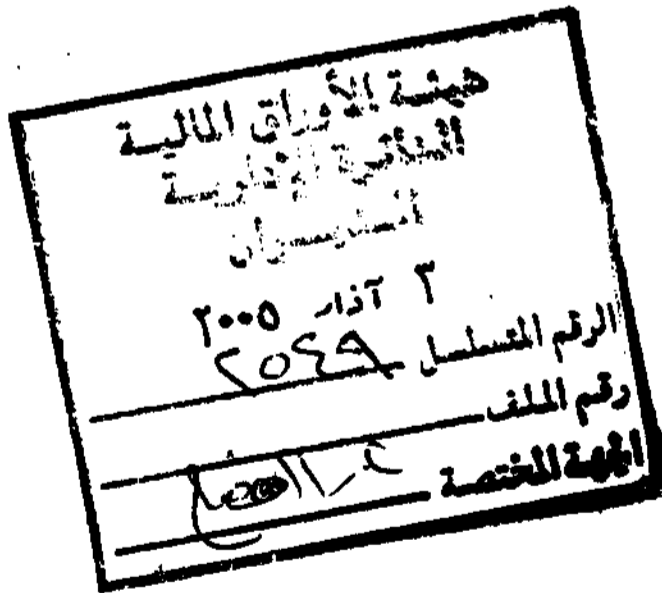 هيئة الأوراق المالية
الدائرة الإدارية
الديوان
٣ آذار ٢٠٠٥
الرقم المتسلسل ٢٥٤٩
رقم الملف
الجهة المختصة